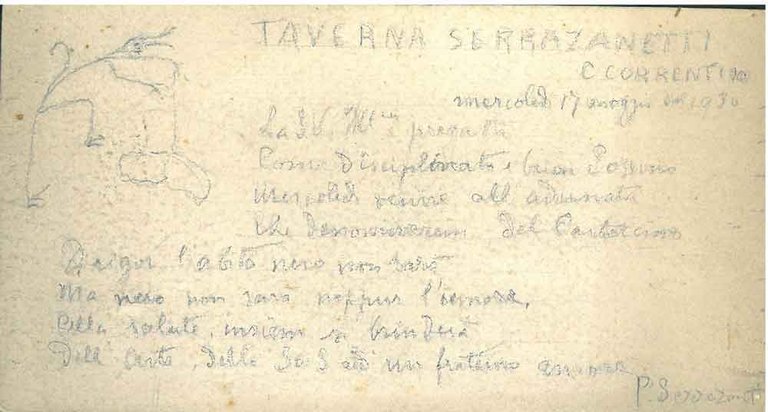 TAVERNA SERRAZANETTI
C CORRENTI
mercoledì 17 maggio 1930
La S.V. è pregata
Come disciplinato e buon
Mercoledì venire all adunata
Che denomineremo del
l'abito nero non sarà
Ma nero non sarà neppur l'umore,
Alla salute, insiem si brinderà
Dell' arte, della ad un fraterno amore
P. Serrazanetti